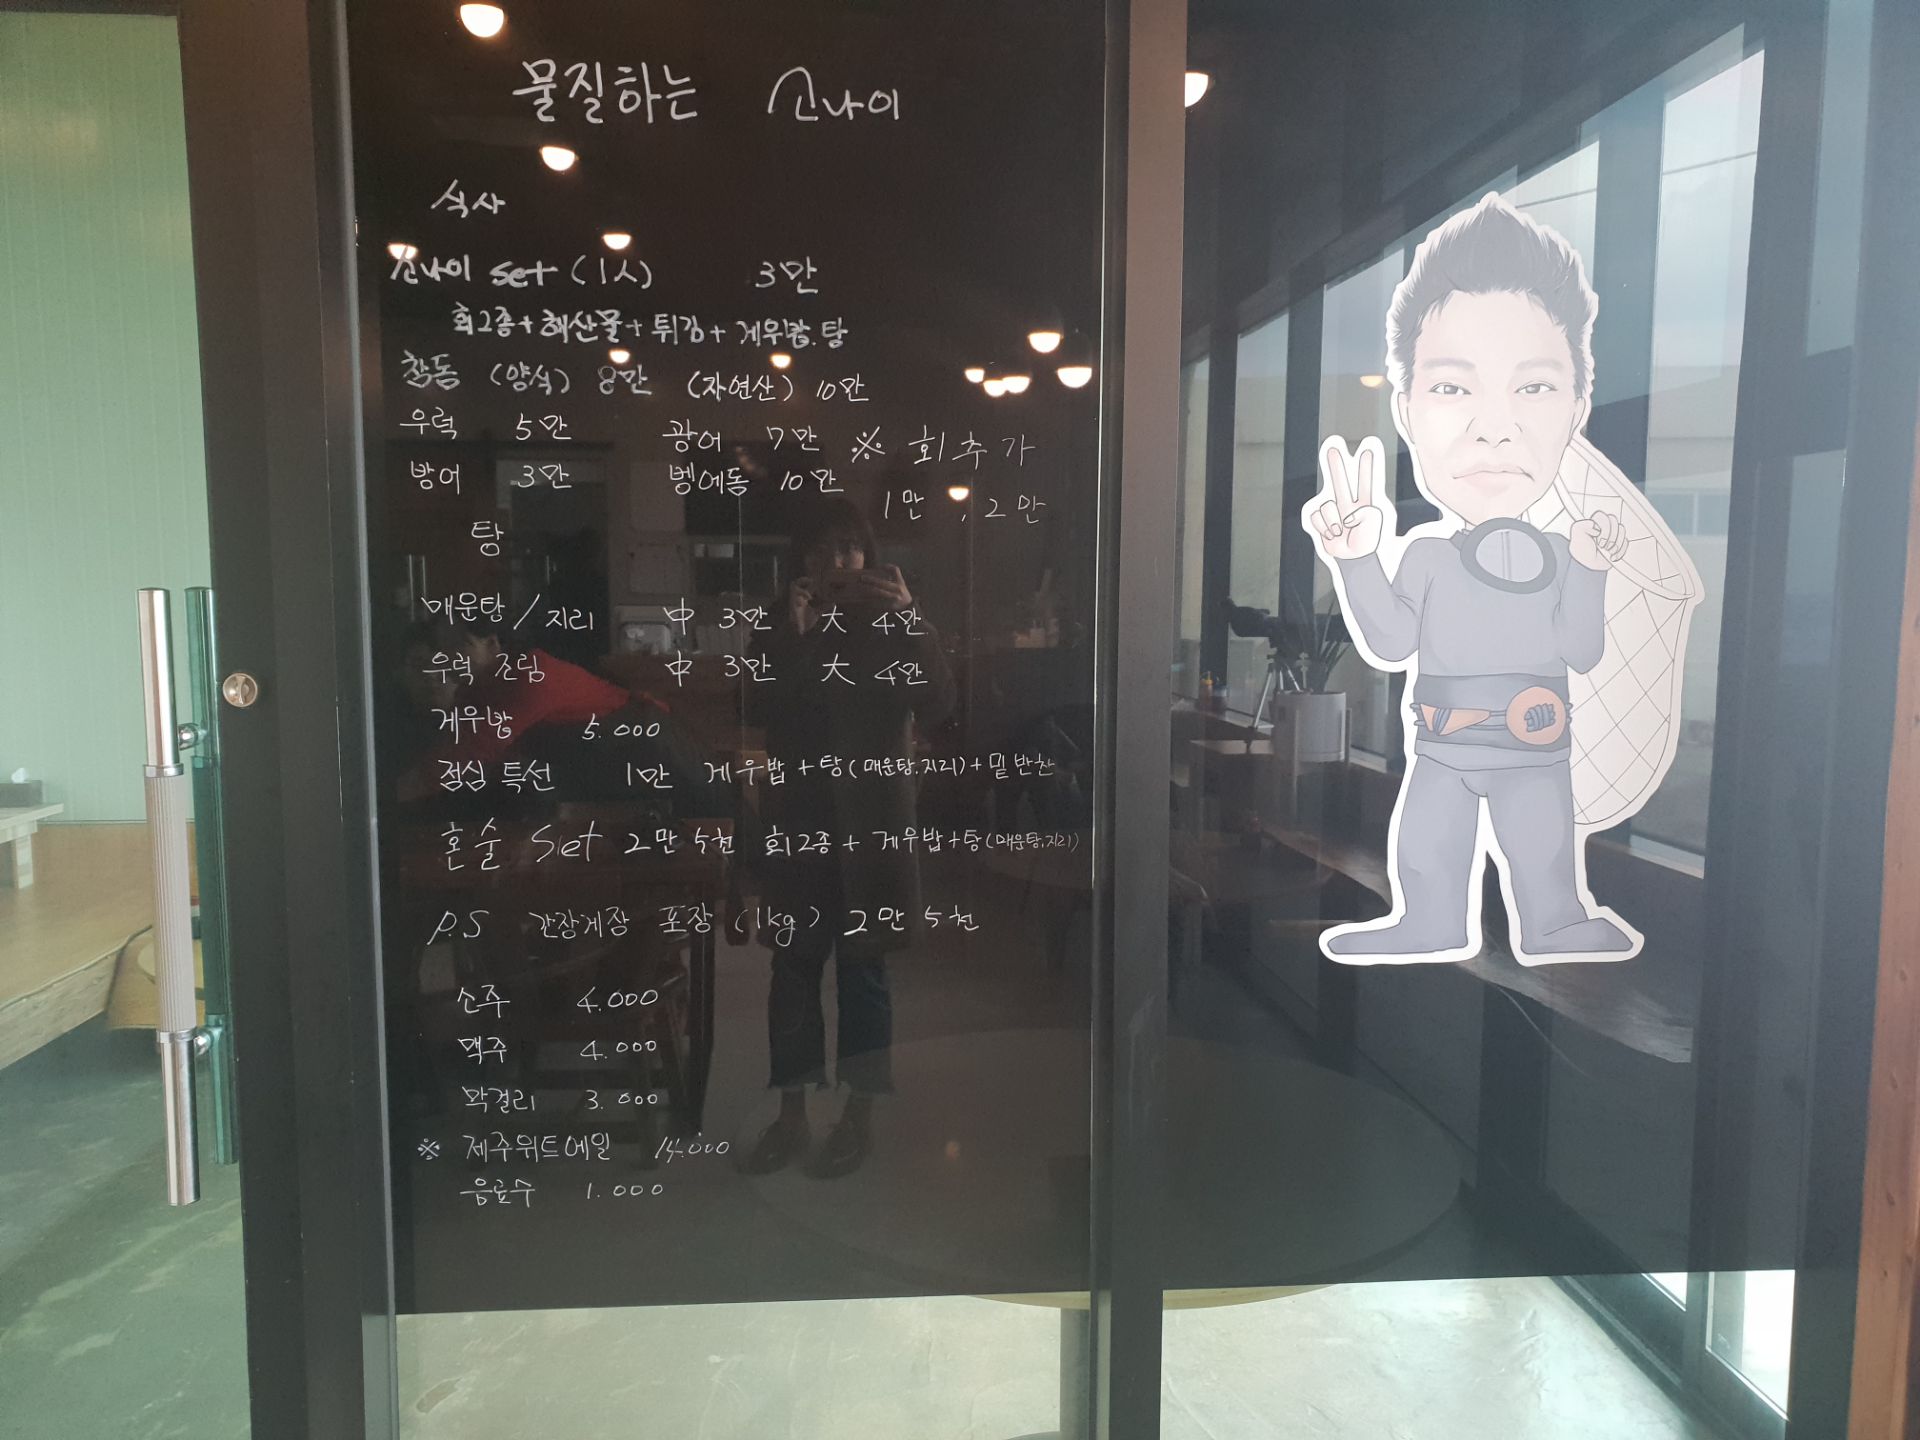 물질하는 소나이
식사
소나이 set (1人) 3만
회2종+해산물+튀김+게우밥.탕
참돔 (양식) 8만 (자연산) 10만
우럭 5만 광어 7만 ※ 회추가
방어 3만 벵에돔 10만 1만, 2만
탕
매운탕/지리 中 3만 大 4만
우럭 조림 中 3만 大 4만
게우밥 5.000
점심 특선 1만 게우밥+탕(매운탕.지리)+밑반찬
혼술 Set 2만 5천 회2종+게우밥+탕(매운탕.지리)
P.S 간장게장 포장 (1kg) 2만 5천
소주 4.000
맥주 4.000
막걸리 3.000
※ 제주위트에일 14.000
음료수 1.000